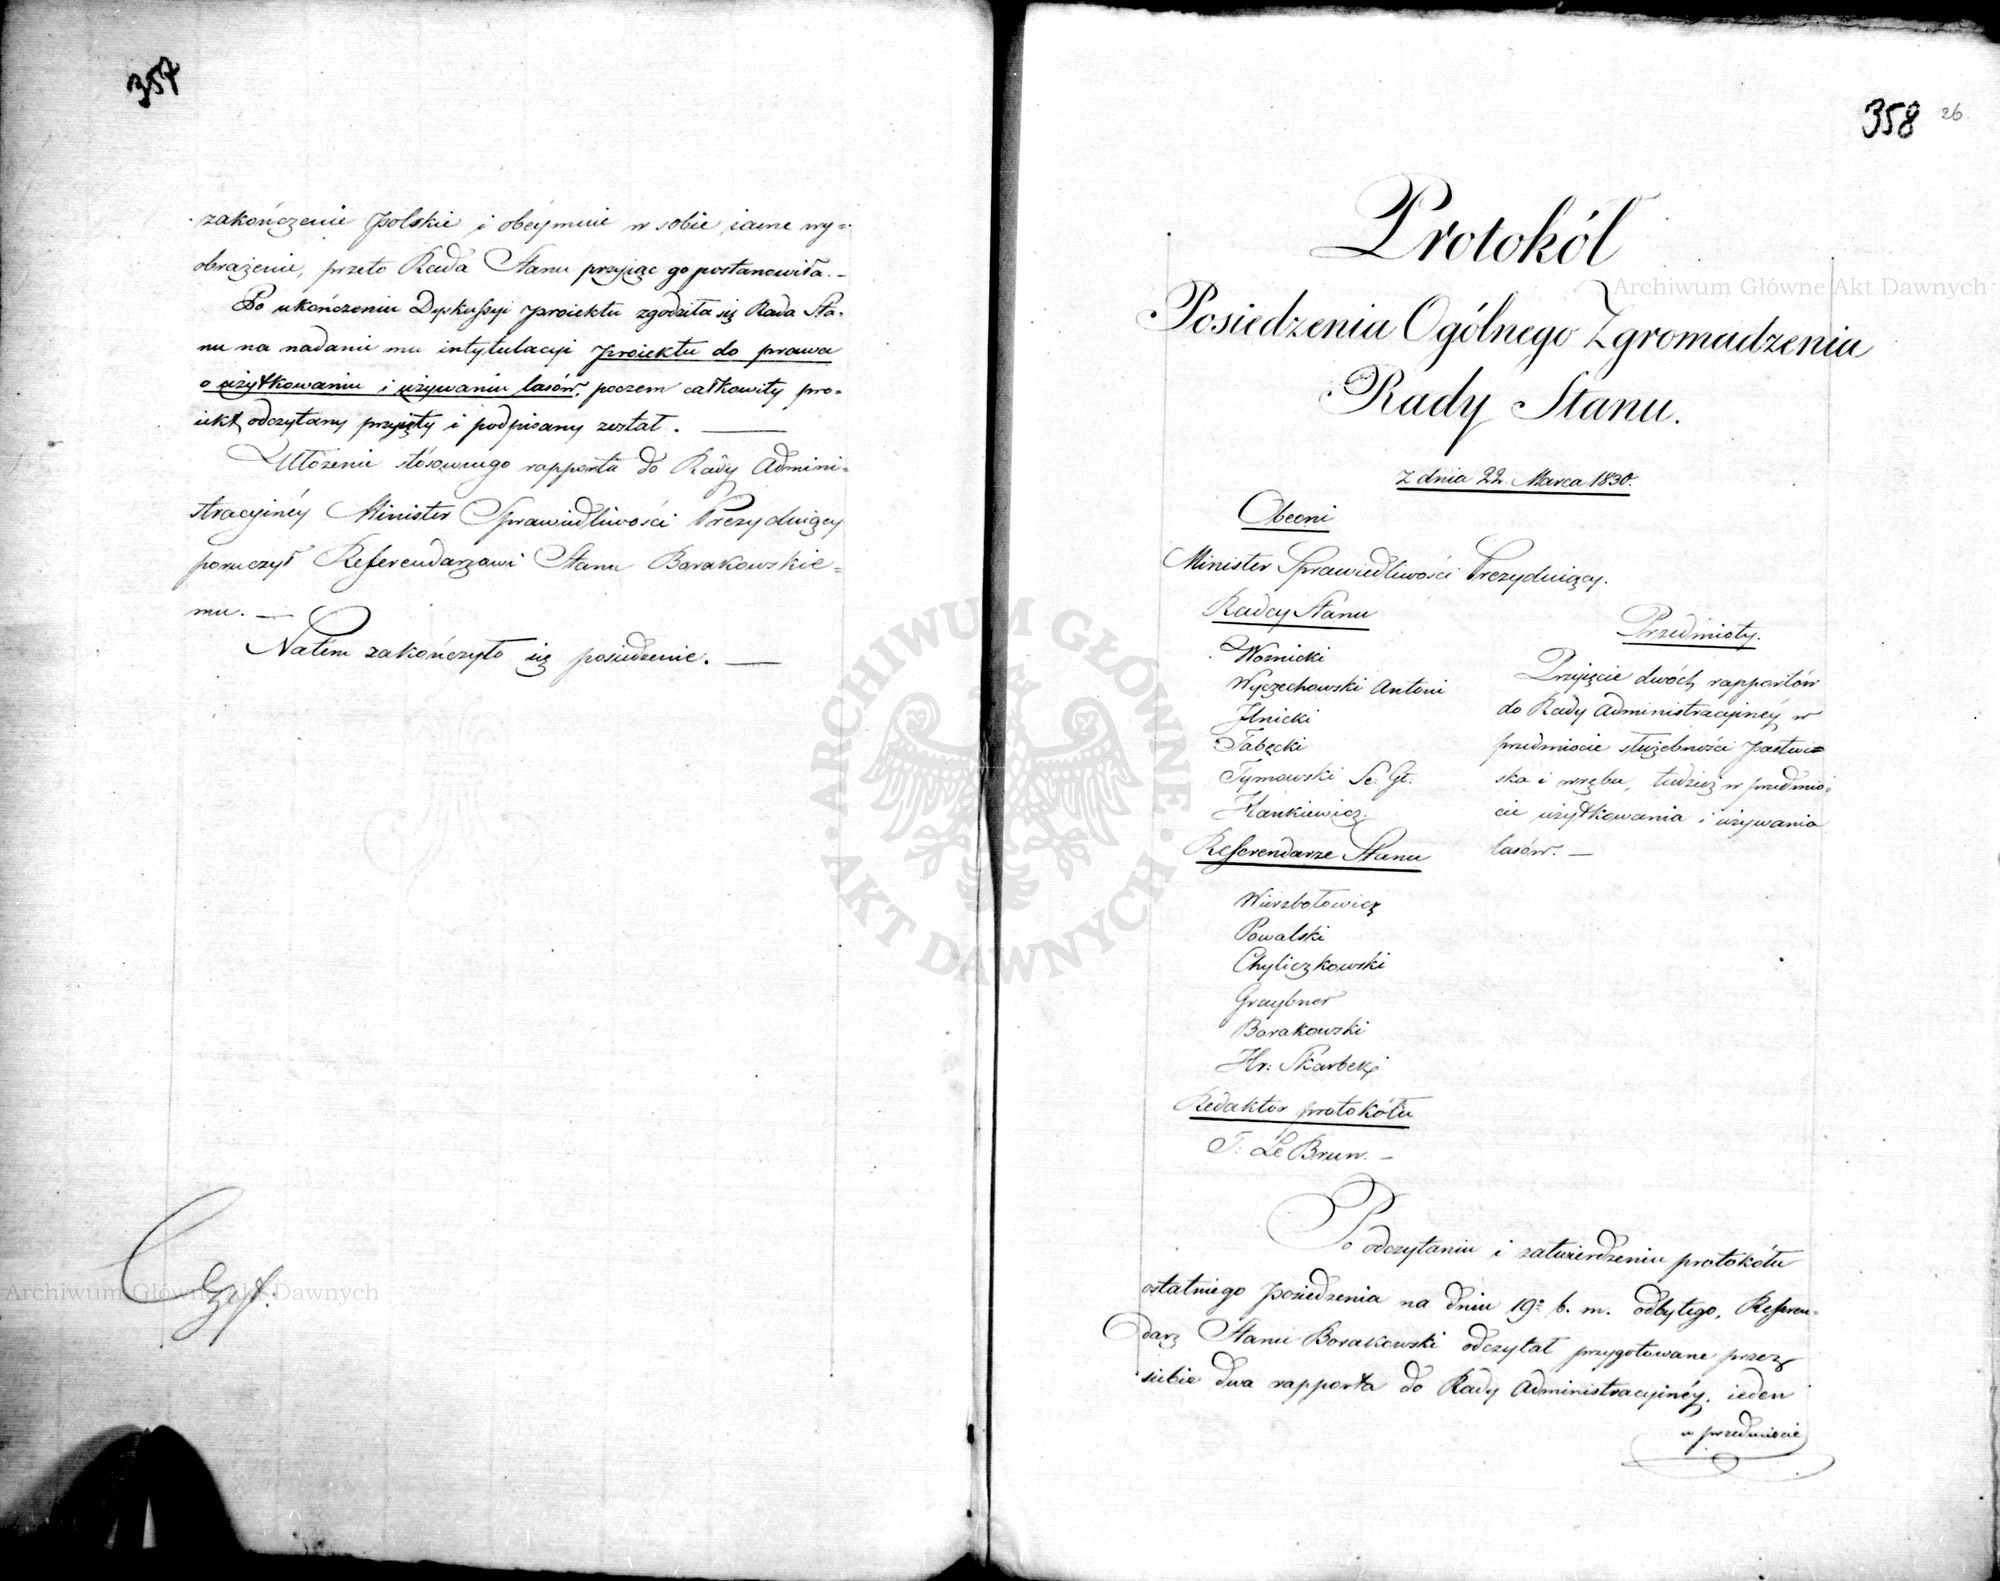 357
zakończenie polskie i obéymuie w sobie iasne wy=
obrażenie, przeto Rada Stanu przyiąć go postanowiła. —
Po ukończeniu Dyskussyi proiektu zgodziła się Rada Sta-
nu na nadanie mu intytulacyi proiektu do prawa
o użytkowaniu i używaniu lasów, poczem całkowity pro-
iekt odczytany przyięty i podpisany został. —
Ułożenie stósownego rapportu do Rady Admini=
stracyinéy Minister Sprawiedliwości Prezyduiący
poruczył Referendarzowi Stanu Borakowskie=
mu. —
Natem zakończyło się posiedzenie. —
358 26.
Protokół
Posiedzenia Ogólnego Zgromadzenia
Rady Stanu.
Z dnia 22. Marca 1830.
Obecni
Minister Sprawiedliwości Prezyduiący.
Radcy Stanu
Woznicki
Wyczechowski Antoni
Ilnicki
Tabęcki
Tymowski Se: Gł:
Hankiewicz.
Referendarze Stanu
Wierzbołowicz
Powalski
Chyliczkowski
Graybner
Borakowski
Hr: Skarbek
Redaktor protokółu
T: Le Brun. —
Przedmioty.
Przyięcie dwóch rapportów
do Rady Administracyinéy w
przedmiocie służebności pastwi=
ska i wrębu, tudzież w przedmio=
cie użytkowania i używania
lasów. —
Po odczytaniu i zatwierdzeniu protokółu
ostatniego posiedzenia na dniu 19º b. m. odbytego, Referen=
darz Stanu Borakowski odczytał przygotowane przez
siebie dwa rapporta do Rady Administracyinéy, ieden
w przedmiocie
Archiwum Główne Akt Dawnych
Archiwum Główne Akt Dawnych
ARCHIWUM GŁÓWNE
AKT DAWNYCH